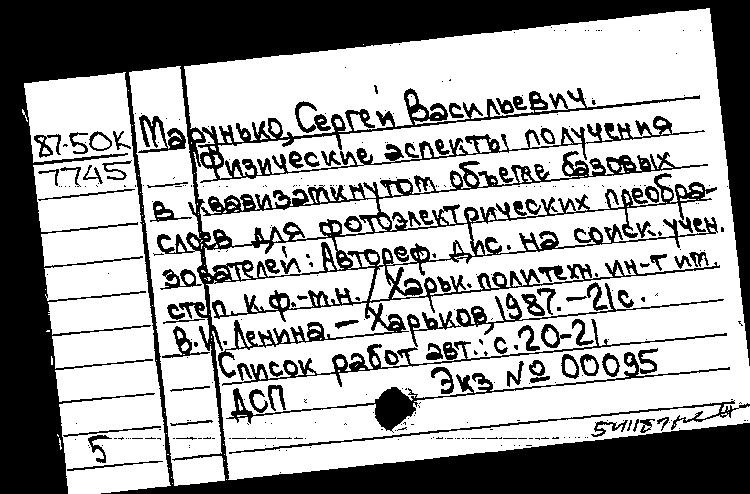 87-50К
7745
Марунько, Сергей Васильевич.
Физические аспекты получения
в квазизамкнутом объеме базовых
слоев для фотоэлектрических преобра-
зователей: Автореф. дис. на соиск. учен.
степ. к.ф.-м.н. / Харьк. политехн. ин-т им.
В.И. Ленина. — Харьков, 1987. — 21с.
Список работ авт.: с. 20-21.
ДСП Экз № 00095
5